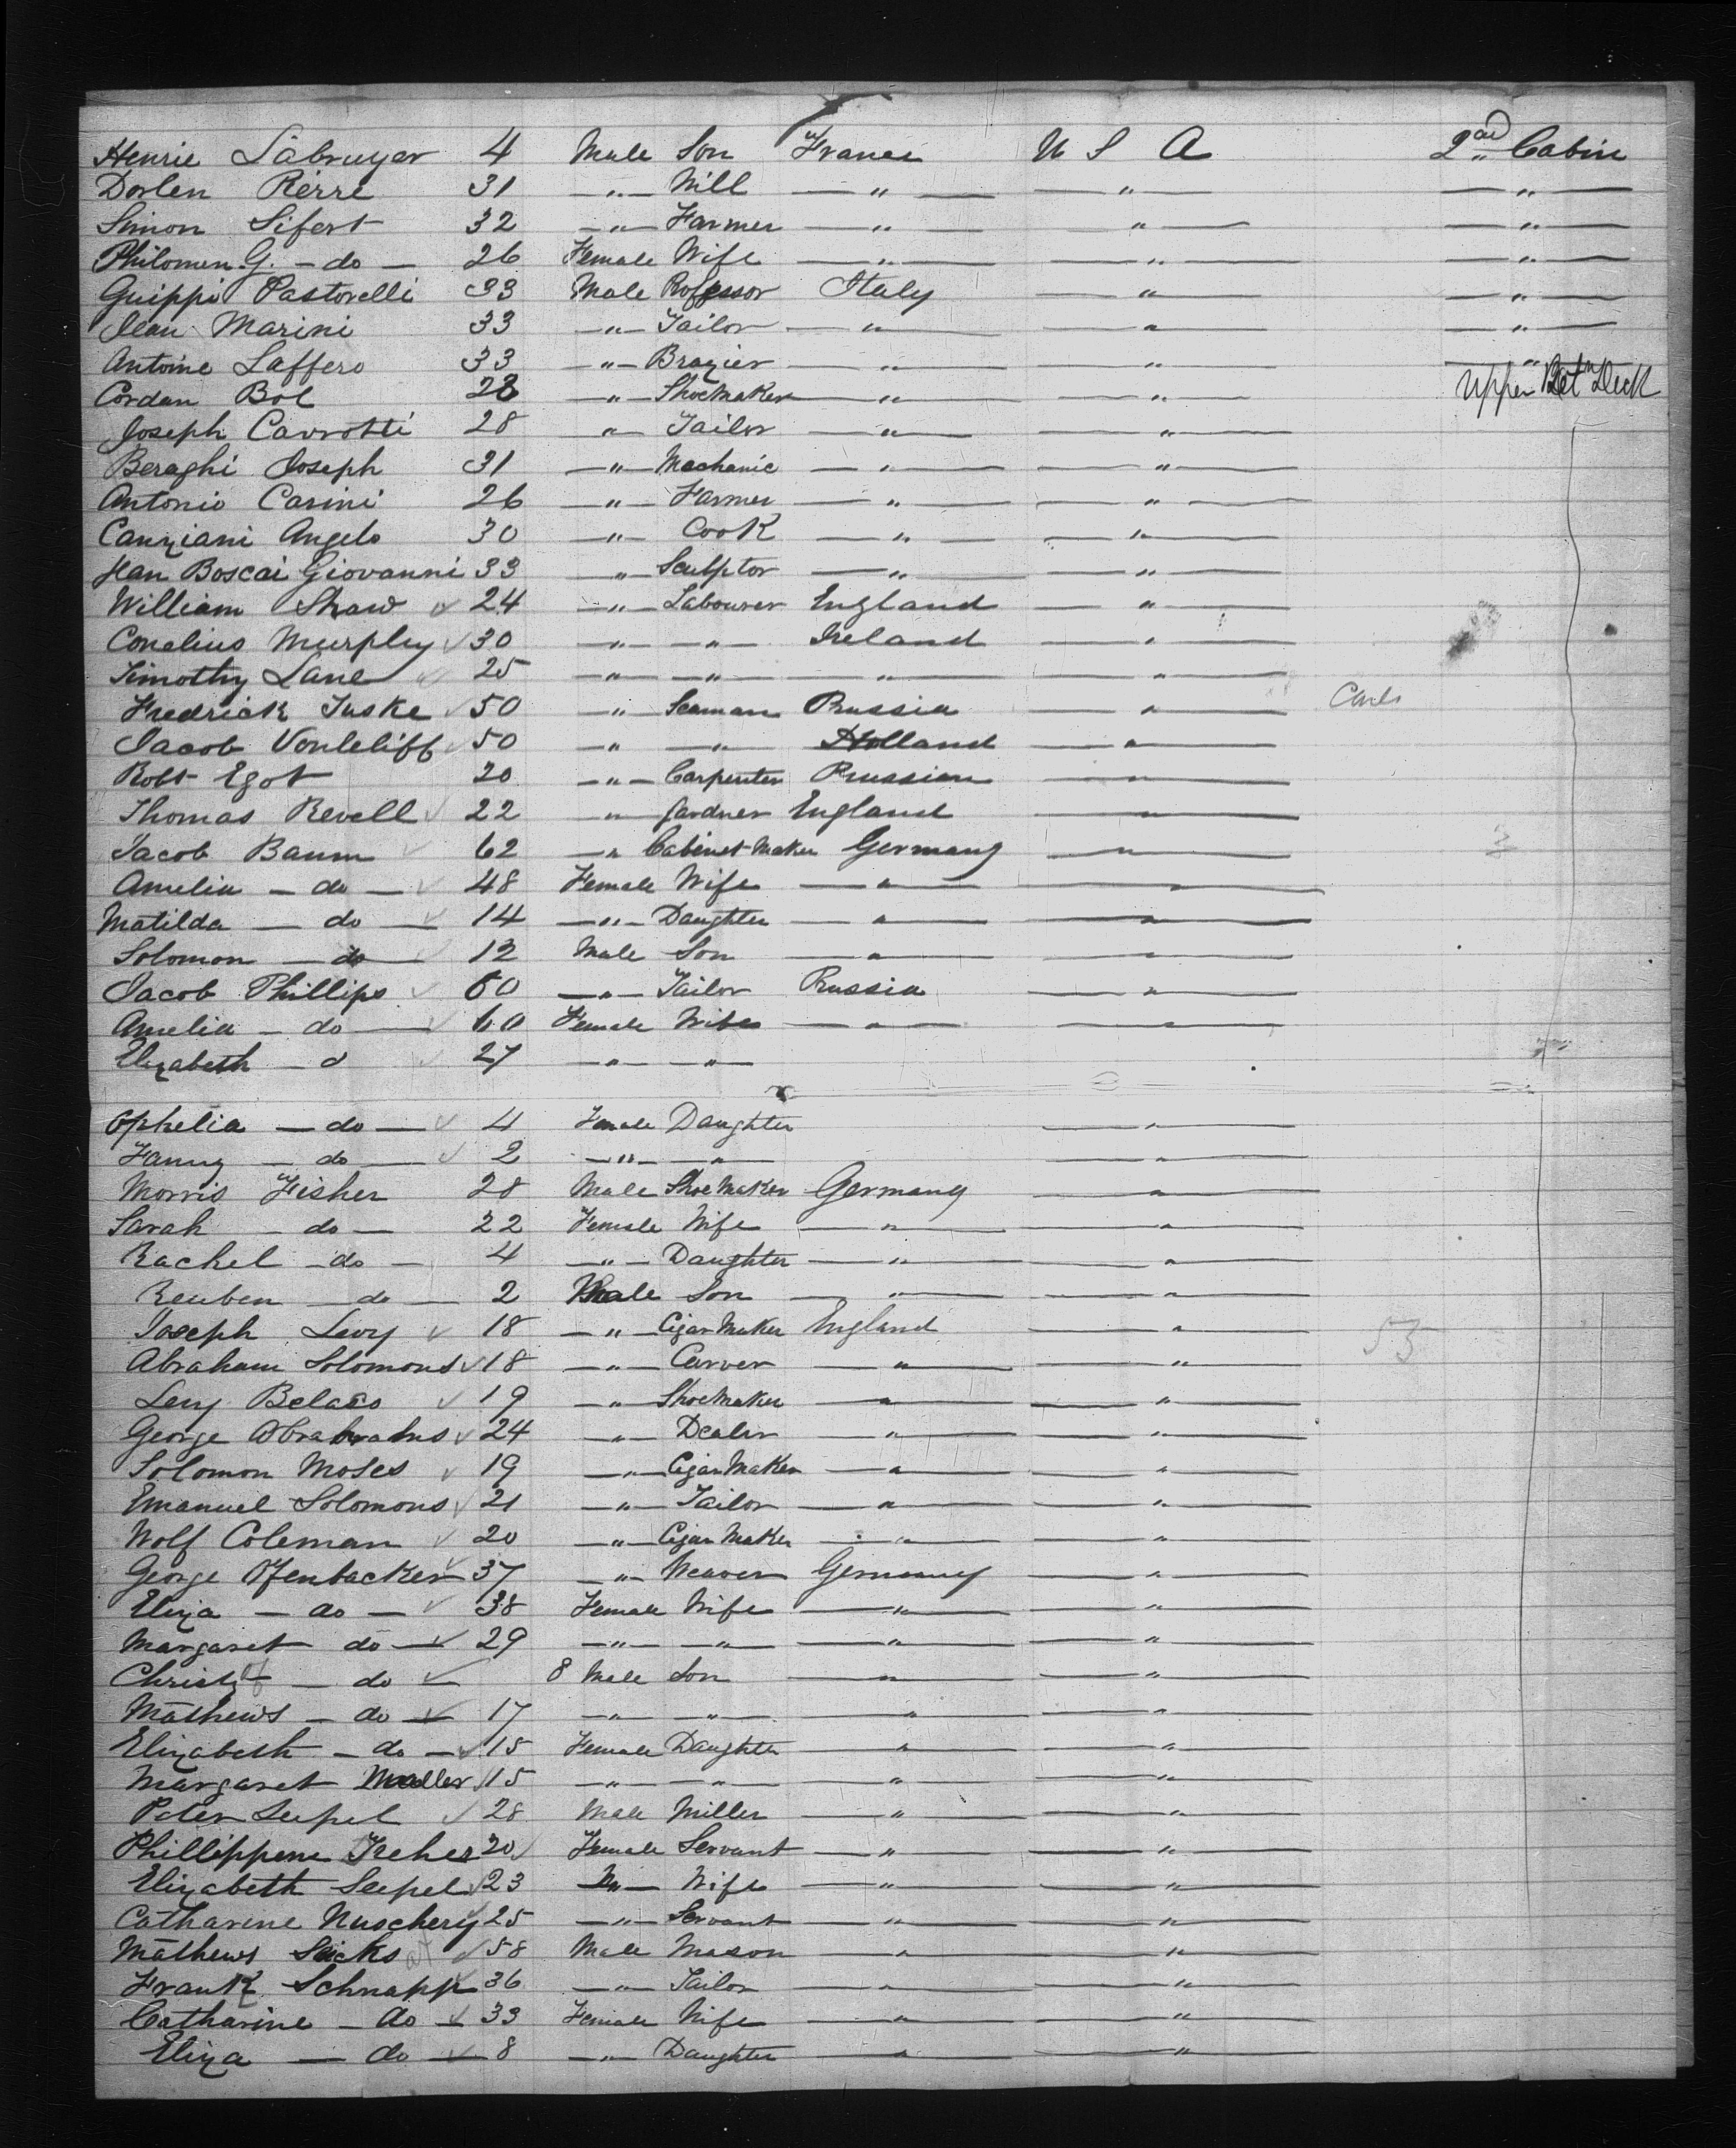 Henrie Labruyer 4 Male Son France U S A 2nd Cabin
Dorlen Pierre 31 — " — Will — " — — " — — " —
Simon Sifert 32 — " — Farmer — " — — " — — " —
Philomen G. — do — 26 Female Wife — " — — " — — " —
Guippi Pastorelli 33 Male Professor Italy — " — — " —
Jean Marini 33 — " — Tailor — " — — " — — " —
Antoine Laffero 33 — " — Brazier — " — — " — — " —
Cordan Bol 28 — " — Shoemaker — " — — " — Upper Bet n Deck
Joseph Cavrotti 28 " — Tailor — " — — " —
Beraghi Joseph 31 — " — Mechanic — " — — " —
Antonio Carini 26 — " — Farmer — " — — " —
Canziani Angelo 30 — " — Cook — " — — " —
Jean Boscai Giovanni 33 — " — Sculptor — " — — " —
William Shaw 24 — " — Labourer England — " —
Conelius Murphy 30 — " — — " — Ireland — " —
Timothy Lane 25 — " — — " — " — " —
Fredrick Tuske 50 — " Seaman Russia — " —
Jacob Vonleliff 50 — " — — " — Holland — " —
Robt Egot 20 — " — Carpenter Prussian — " —
Thomas Revell 22 — " Gardner England — " —
Jacob Baum 62 — " Cabinet Maker Germany — " —
Amelia — do — 48 Female Wife — " — — " —
Matilda — do — 14 — " — Daughter — " — — " —
Solomon — do — 12 Male Son — " — — " —
Jacob Phillips 60 — " — Tailor Russia — " —
Amelia — do — 60 Female Wife — " — — " —
Elizabeth — d 27 — " — — " —
Ophelia — do — 4 Female Daughter — " —
Fanny — do — 2 — " — — " — — " —
Morris Fisher 28 Male Shoe Maker Germany — " —
Sarah — do — 22 Female Wife — " — — " —
Rachel — do — 4 — " — Daughter — " — — " —
Reuben — do — 2 Male Son — " — — " —
Joseph Levy 18 — " — Cigar Maker England — " — 53
Abraham Solomons 18 — " — Carver — " — — " —
Levy Belaso 19 — " Shoemaker — " — — " —
George Abrahams 24 — " — Dealer — " — — " —
Solomon Moses 19 — " — Cigar Maker — " — — " —
Emanuel Solomons 21 — " — Tailor — " — — " —
Wolf Coleman 20 — " — Cigar Maker — " — — " —
George Ofenbacker 37 — " — Weaver Germany — " —
Eliza — do — 38 Female Wife — " — — " —
Margaret do — 29 — " — — " — — " — — " —
Christof — do 8 Male Son — " — — " —
Mathews — do — 17 — " — — " — " — " —
Elizabeth — do — 15 Female Daughter — " — — " —
Margaret Muller 15 — " — — " — — " — — " —
Peter Seepel 28 Male Miller — " — — " —
Phillippene Treher 20 Female Servant — " — — " —
Elizabeth Seepel 23 — " — Wife — " — — " —
Catharine Nuschery 25 — " — Servant — " — — " —
Mathews Sicks 58 Male Mason — " — — " —
Frank Schnapp 36 — " — Tailor — " — — " —
Catharine — do — 33 Female Wife — " — — " —
Eliza — do — 8 — " — Daughter — " — — " —